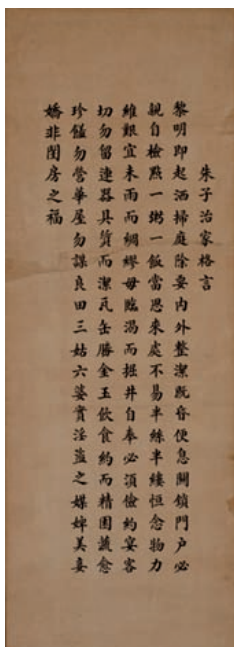 朱子治家格言
黎明即起洒掃庭除要內外整潔既昏便息關鎖門户必
親自檢點一粥一飯當思來處不易半絲半縷恒念物力
維艱宜未雨而綢繆毋臨渴而掘井自奉必須儉約宴客
切勿留連器具質而潔瓦缶勝金玉飲食約而精園蔬愈
珍饈勿營華屋勿謀良田三姑六婆實淫盜之媒婢美妾
嬌非閨房之福